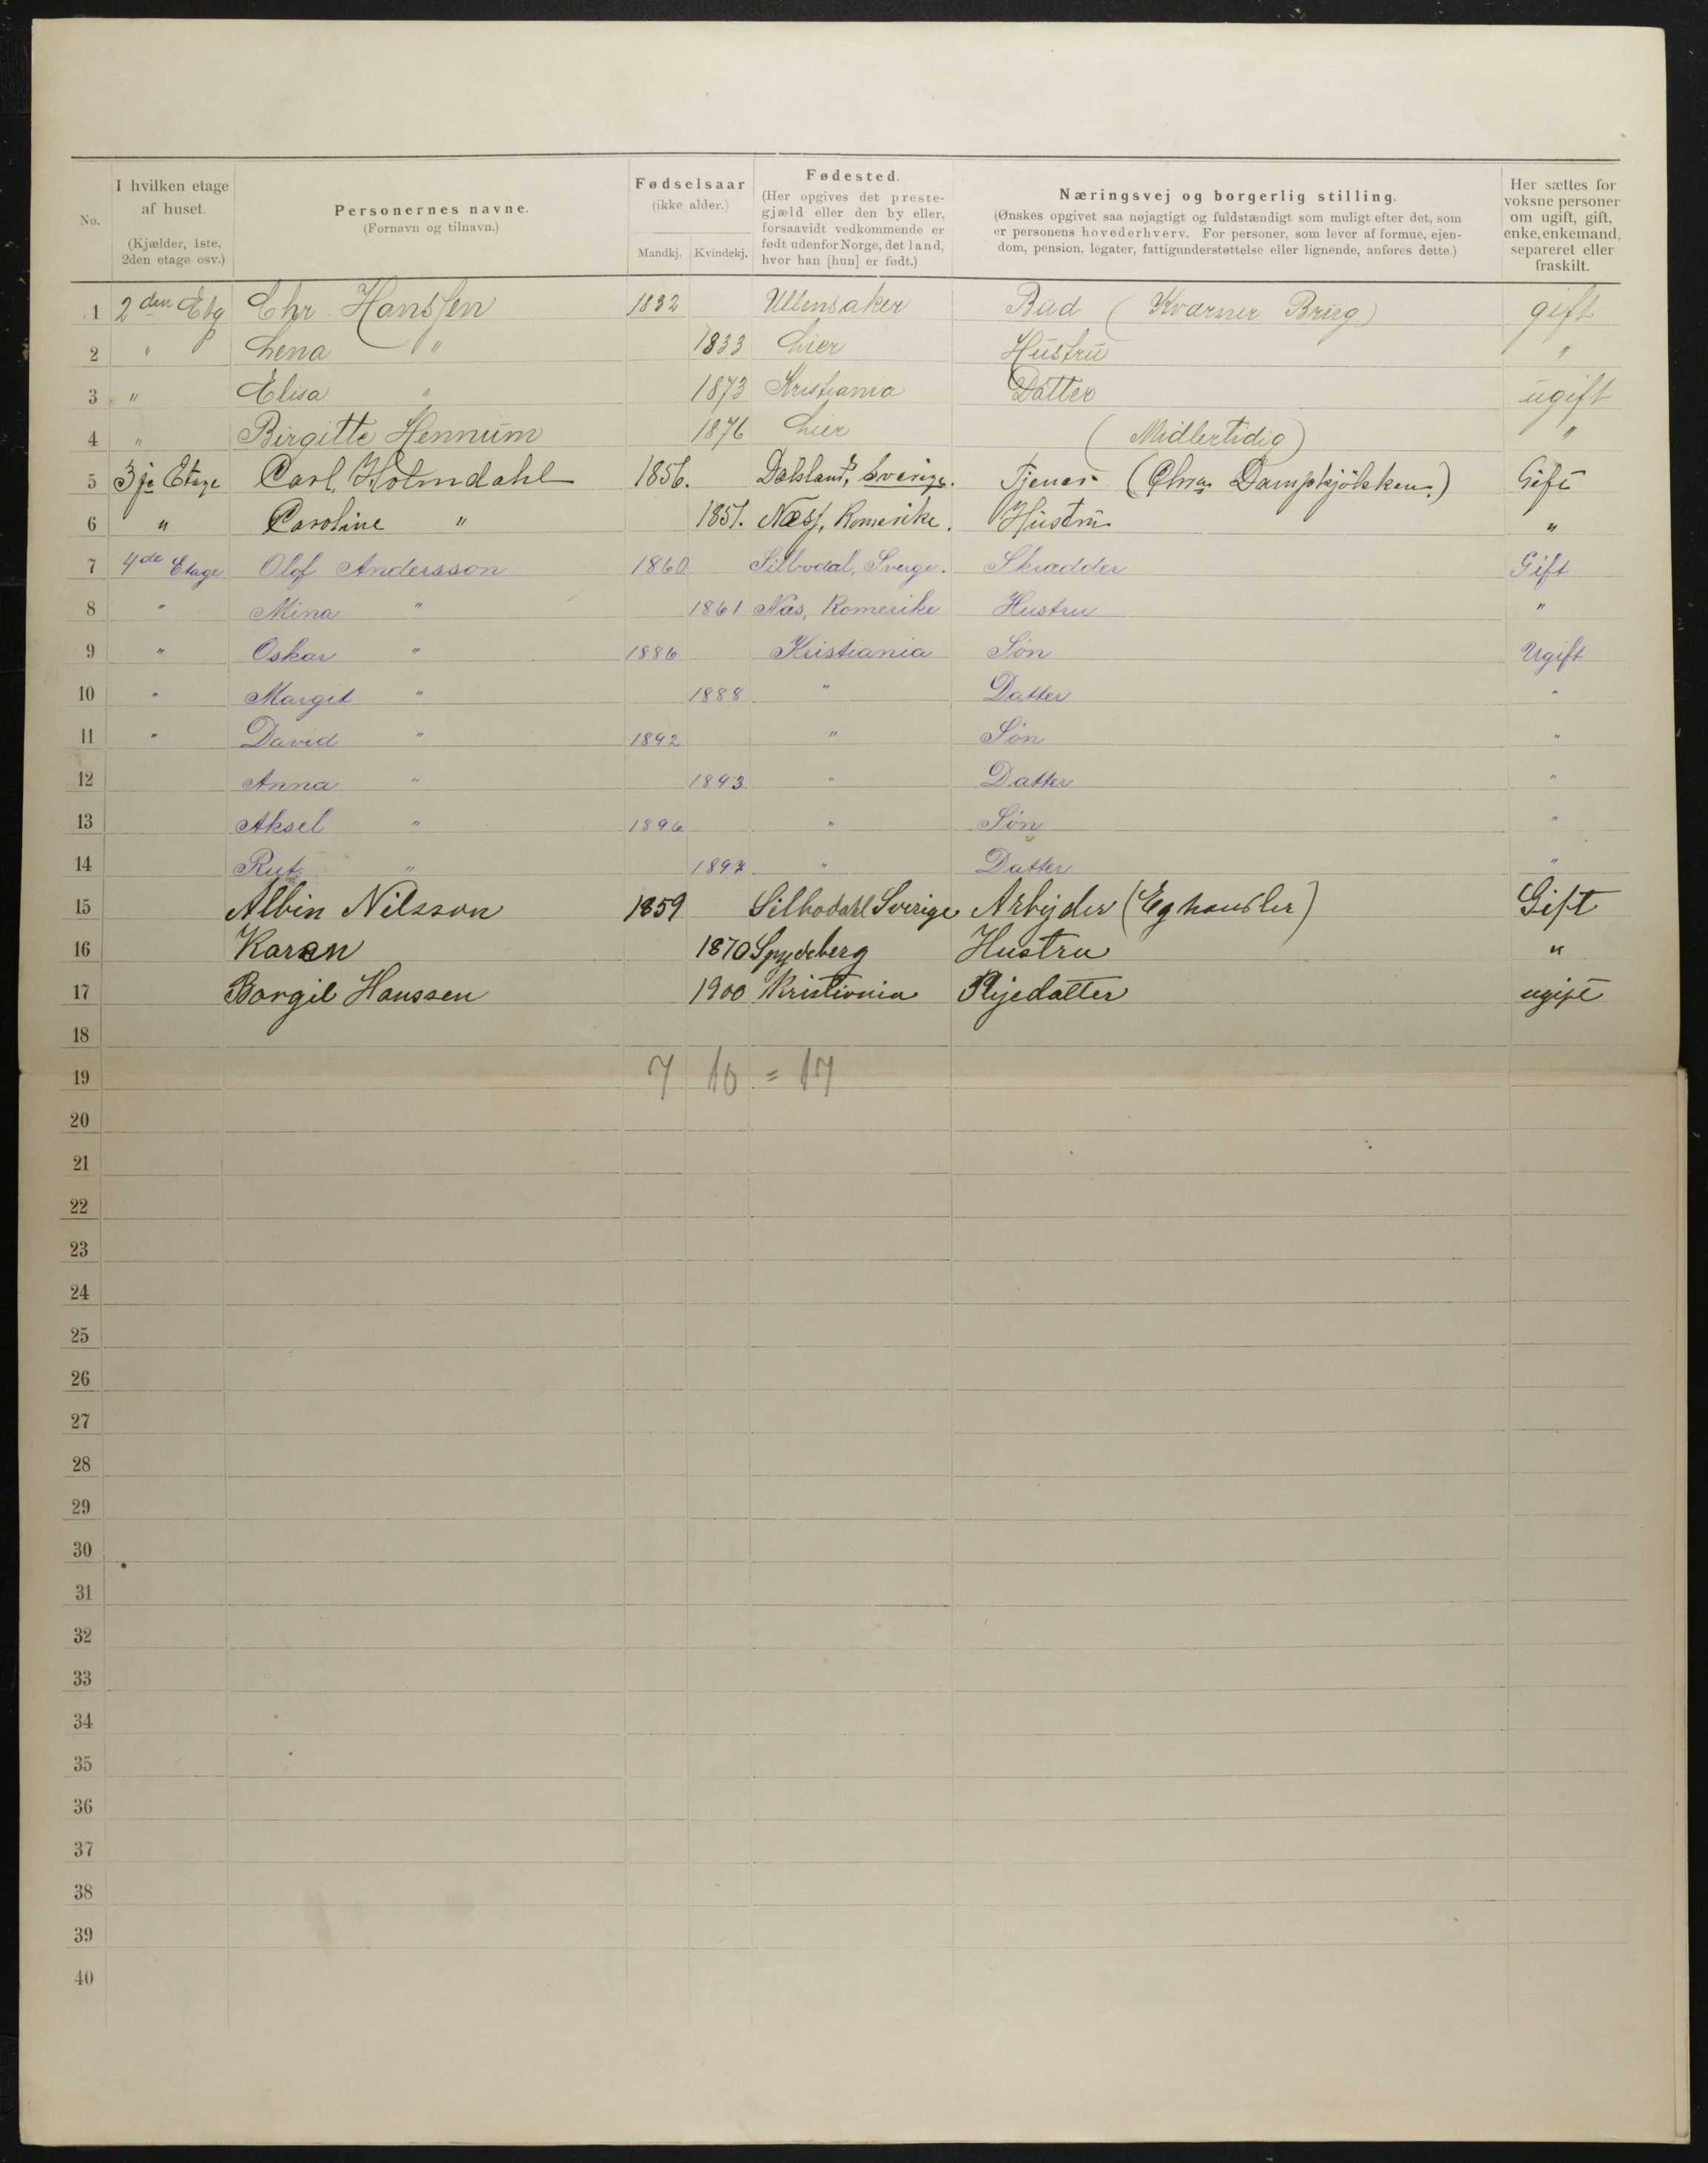 No.
I hvilken etage af huset.
(Kjælder, 1ste, 2den etage osv.)
Personernes navne.
(Fornavn og tilnavn.)
Fødselsaar
(ikke alder.)
Mandkj. Kvindekj.
Fødested.
(Her opgives det prestegjæld eller den by eller, forsaavidt vedkommende er født udenfor Norge, det land, hvor han [hun] er født.)
Næringsvej og borgerlig stilling.
(Ønskes opgivet saa nøjagtigt og fuldstændigt som muligt efter det, som er personens hovederhverv. For personer, som lever af formue, ejendom, pension, legater, fattigunderstøttelse eller lignende, anføres dette.)
Her sættes for voksne personer om ugift, gift, enke, enkemand, separeret eller fraskilt.
1 2den Etg Chr Hanssen 1832 Ullensaker Bud (Kværner Brug) gift
2 " Lena " 1833 Lier Hustru "
3 " Elisa " 1873 Kristiania Datter ugift
4 " Birgitte Hennum 1876 Lier (Midlertidig) "
5 3je Etage Carl Holmdahl 1856. Dalsland, Sverige. Tjener (Chra Dampkjøkken.) Gift
6 " Caroline " 1851. Næss, Romerike. Hustru "
7 4de Etage Olof Andersson 1860 Silbodal, Sverge. Skrædder Gift
8 " Mina " 1861 Næs, Romerike Hustru "
9 " Oskar " 1886 Kristiania Søn Ugift
10 " Margit " 1888 " Datter "
11 " David " 1892 " Søn "
12 Anna " 1893 " Datter "
13 Aksel " 1896 " Søn "
14 Rut " 1897 " Datter "
15 Albin Nilsson 1859 Silbodahl Sverige Arbejder (Eg handler) Gift
16 Karen 1870 Spydeberg Hustru "
17 Borgil Hanssen 1900 Kristiania Plejedatter ugift
18
19 7 10 = 17
20
21
22
23
24
25
26
27
28
29
30
31
32
33
34
35
36
37
38
39
40